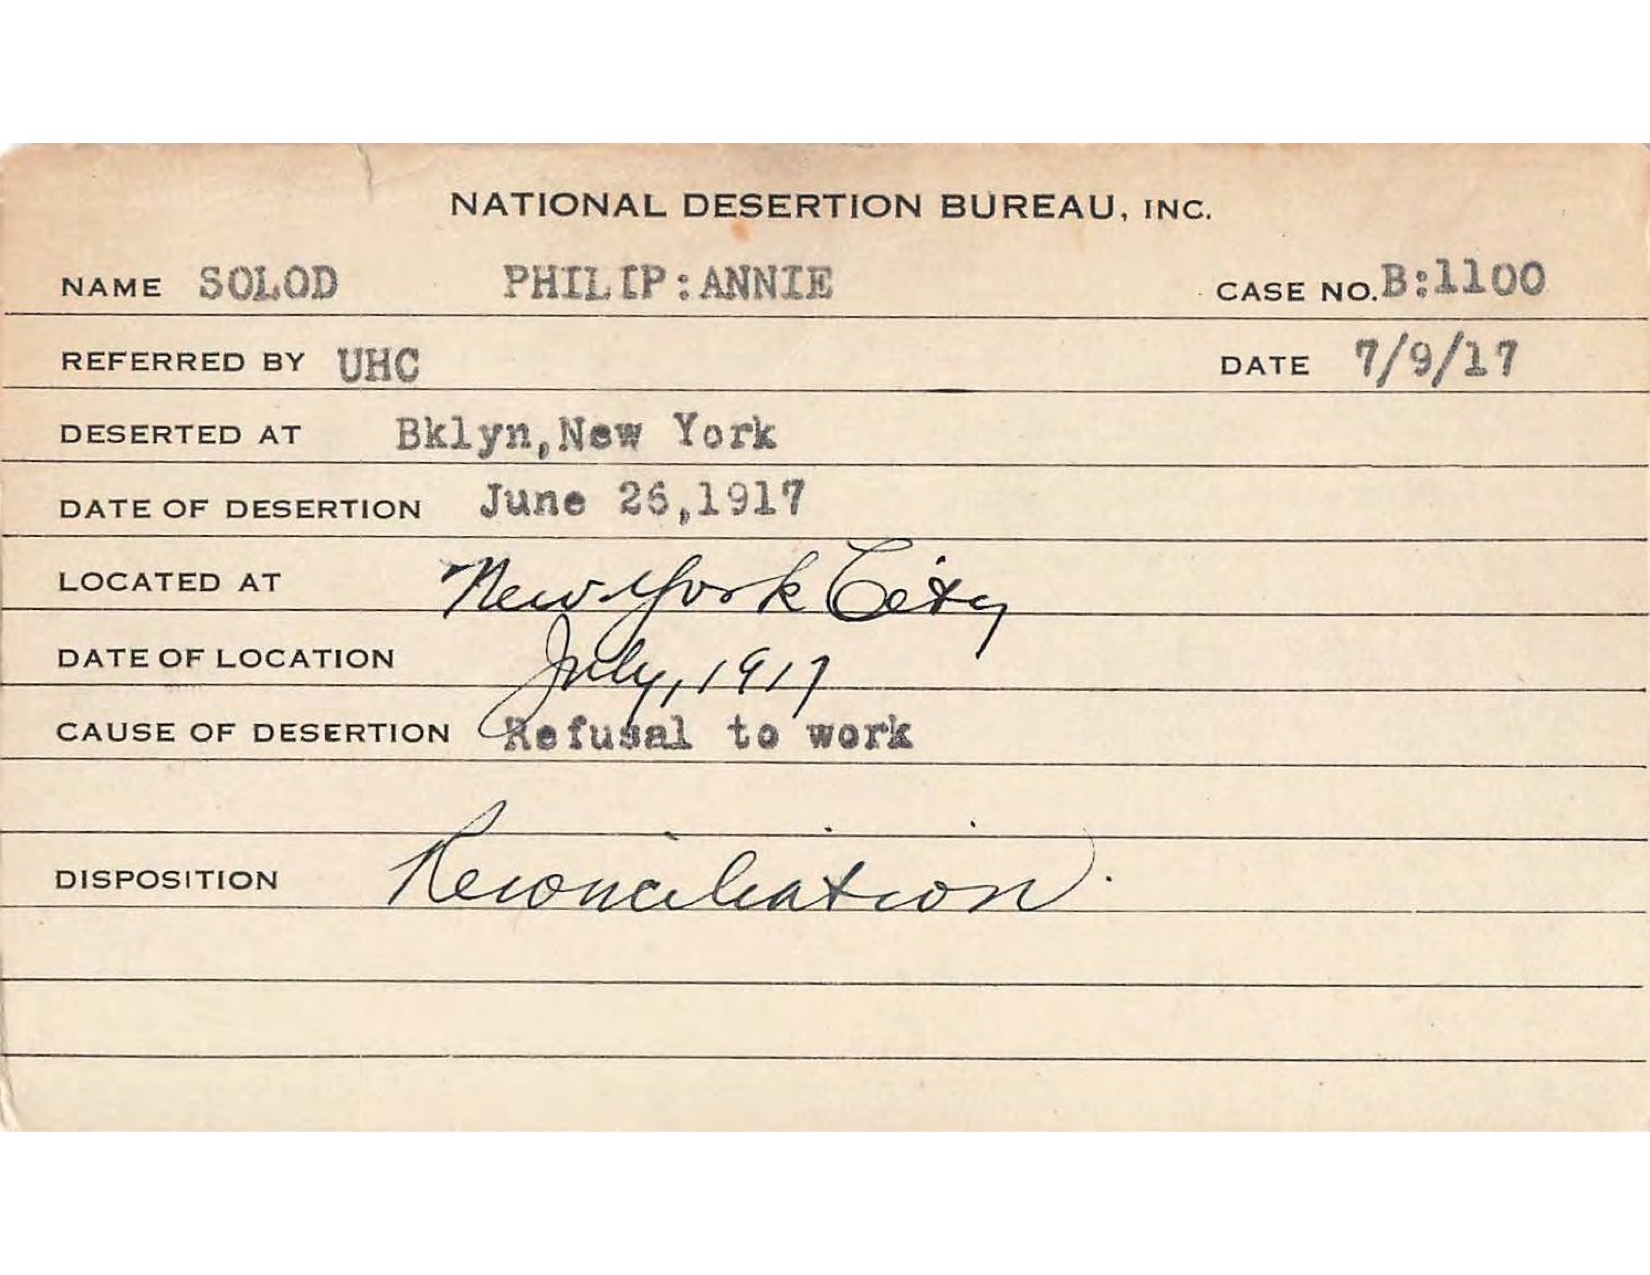 NATIONAL DESERTION BUREAU, INC.
NAME SOLOD PHILIP:ANNIE CASE NO. B:1100
REFERRED BY UHC DATE 7/9/17
DESERTED AT Bklyn,New York
DATE OF DESERTION June 26,1917
LOCATED AT New York City
DATE OF LOCATION July, 1917
CAUSE OF DESERTION Refusal to work
DISPOSITION Reconciliation.